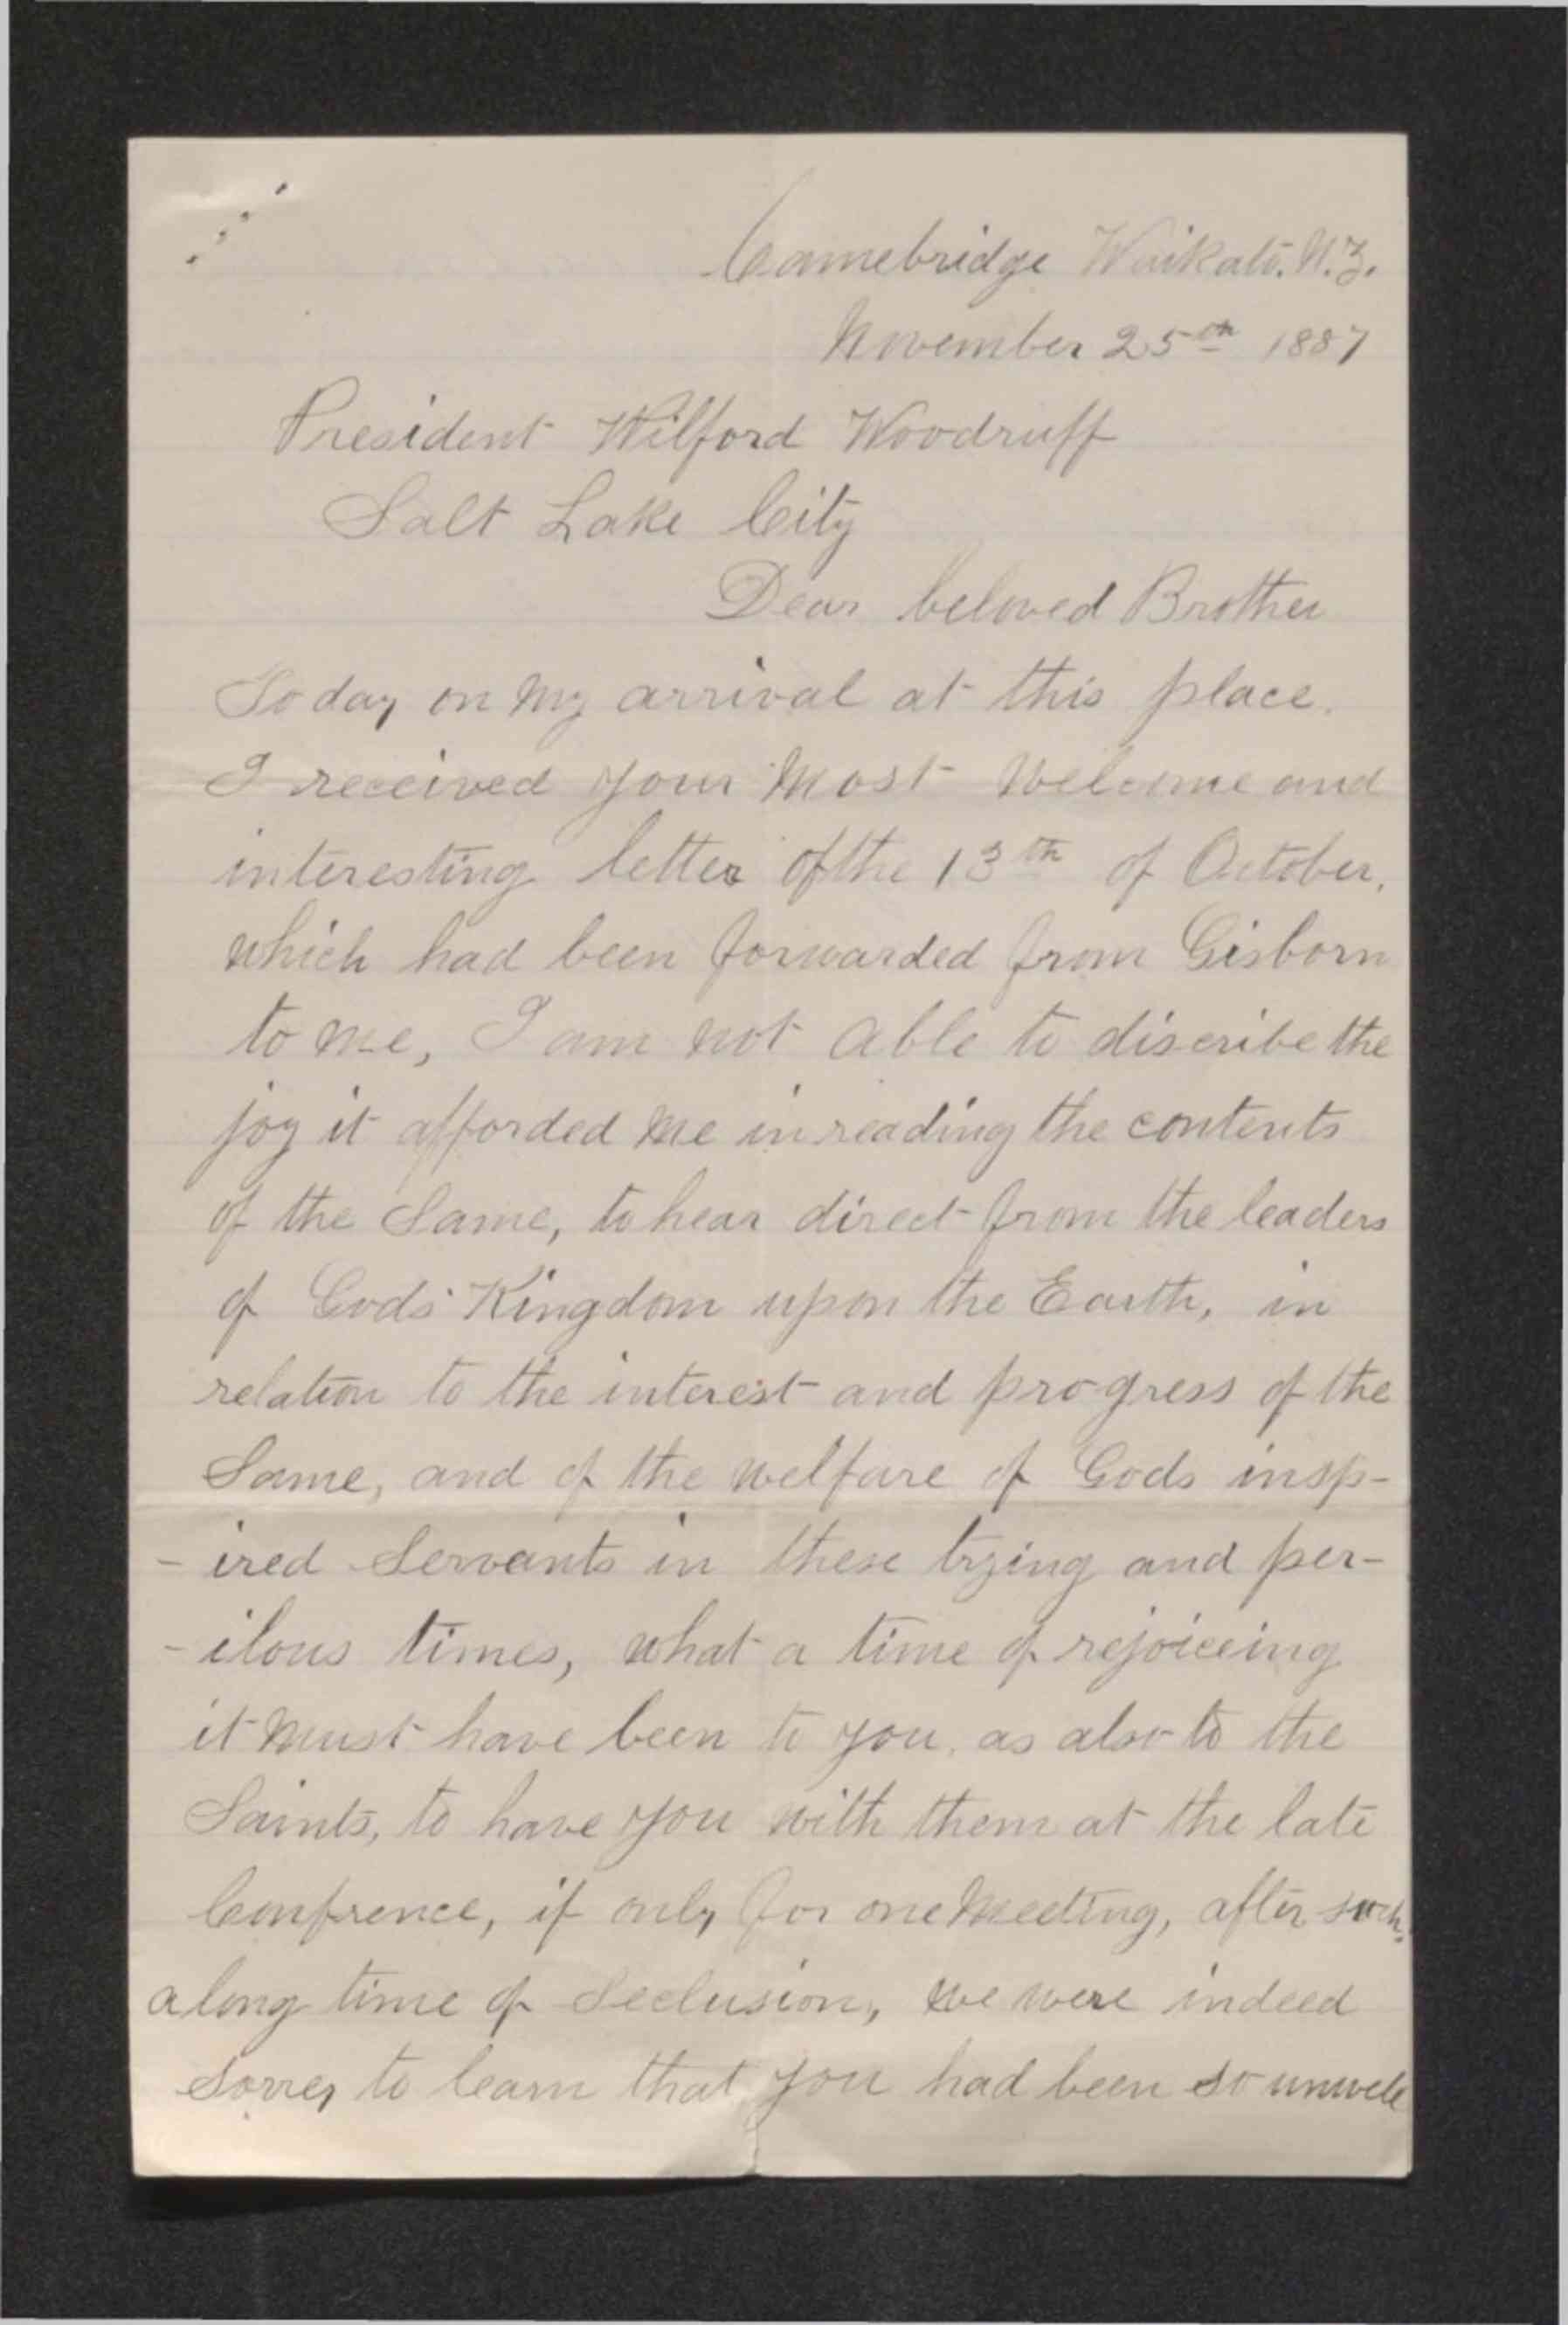 Camebridge Waikato. N.Z.
November 25th 1887
President Wilford Woodruff
Salt Lake City
Dear beloved Brother
Today on my arrival at this place.
I received your most welcome and
interesting letter of the 13th of October,
which had been forwarded from Gisborn
to me, I am not able to discribe the
joy it afforded me in reading the contents
of the Same, to hear direct from the leaders
of Gods Kingdom upon the Earth, in
relation to the interest and progress of the
Same, and of the welfare of Gods insp-
-ired Servants in these trying and per-
-ilous times, what a time of rejoiceing
it must have been to you, as also to the
Saints, to have you with them at the late
Confrence, if only for one meeting, after such,
a long time of Seclusion, we were indeed
Sorrey to learn that you had been so unwell